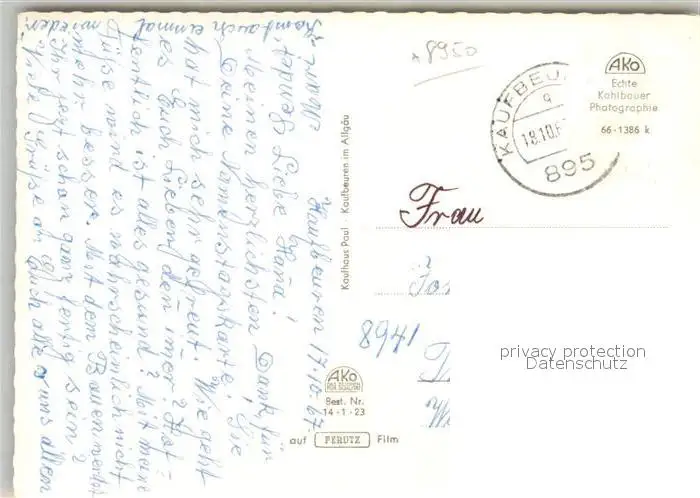 Kaufbeuren 17.10.67
Liebe Hama!
Meinen herzlichsten Dank für
Deine Namenstagskarte. Sie
hat mich sehr gefreut. Wie geht
es Euch Lieben den immer? Hof=
fentlich ist alles gesund? Mit meine
Füße wird es wahrscheinlich nicht
mehr besser. Mit dem
Ihr jetzt schon ganz fertig sein?
Viele Grüße an Euch alle uns allen
Komt auch einmal
wieder.
8950
Kaufhaus Paul Kaufbeuren im Allgäu
KAUFBEU
a
18.10.6
895
AKO
Echte
Kohlbauer
Photographie
66-1386 k
Frau
8941
privacy protection
Datenschutz
AKO
Best. Nr.
14-1-23
auf PERUTZ Film